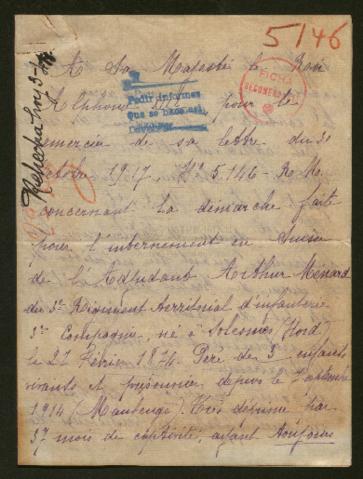 5146
A Sa Majesté le Roi
Alphonse XIII pour le
remercier de sa lettre du 30
Octobre 1917, Nº 5.146-R.M.
concernant la démarche faite
pour l'internement en Suisse
de l'Adjudant Arthur Ménard
du 3e Régiment territorial d'infanterie
3e Compagnie, né à Solesmes (Nord)
le 27 Février 1874. Père de 3 enfants
vivants et prisonnier depuis le 7 septembre
1914 (Maubeuge). Très déprimé par
37 mois de captivité, ayant toujours
Pedir informes
FICHA